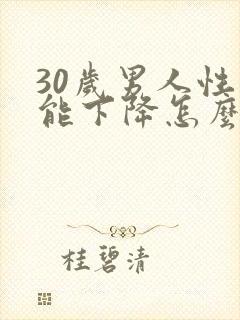 30歲男人性
能下降怎麼
桂碧清